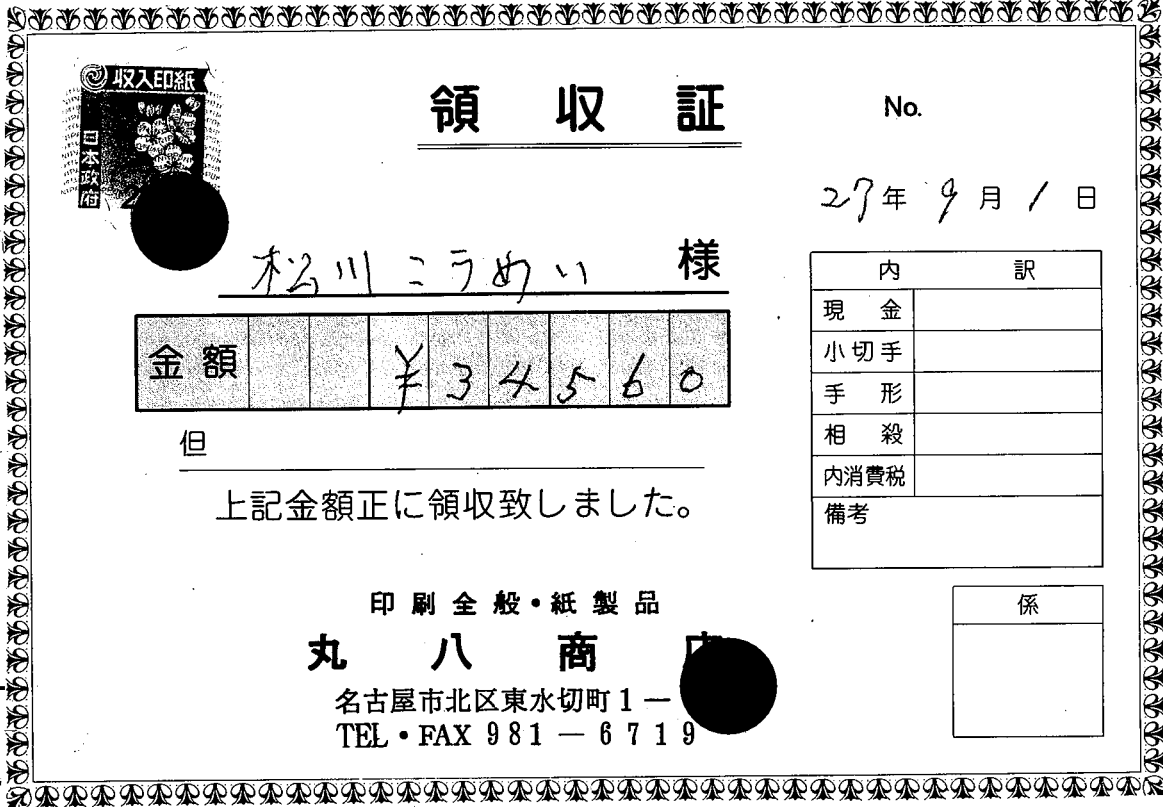 収入印紙
日本政府
領収証
No.
27年9月1日
松川こうめい 様
金額 ¥34560
但
上記金額正に領収致しました。
内訳
現金
小切手
手形
相殺
内消費税
備考
係
印刷全般・紙製品
丸八商
名古屋市北区東水切町1−
TEL・FAX 981−6719